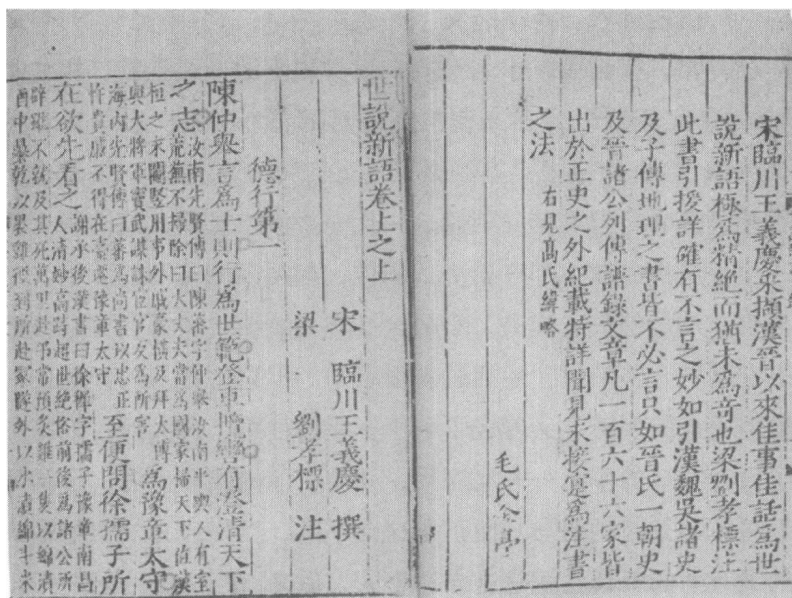 宋臨川王義慶采擷漢晉以來佳事佳話爲世
說新語極爲精絕而猶未爲奇也梁劉孝標注
此書引援詳確有不言之妙如引漢魏吳諸史
及子傳地理之書皆不必言只如晉氏一朝史
及晉諸公列傳譜錄文章凡一百六十六家皆
出於正史之外紀載特詳聞見未接寔爲注書
之法 右見高氏緯略
毛氏金亭
世說新語卷上之上
宋 臨川王義慶 撰
梁 劉孝標 注
德行第一
陳仲舉言爲士則行爲世範登車攬轡有澄清天下
之志
汝南先賢傳曰陳蕃字仲舉汝南平輿人有室
荒蕪不掃除曰大丈夫當爲國家掃天下值漢
桓之末閹豎用事外戚豪橫及拜太傅
與大將軍竇武謀誅宦官反爲所害
爲豫章太守
海內先賢傳曰蕃爲尚書以忠正
忤貴戚不得在臺遷豫章太守
至便問徐孺子所
在欲先看之
謝承後漢書曰徐穉字孺子豫章南昌
人清妙高跱超世絕俗前後爲諸公所
辟雖不就及其死萬里赴弔常預炙雞一隻以綿漬
酒中暴乾以裹雞徑到所赴冢隧外以水漬綿斗米